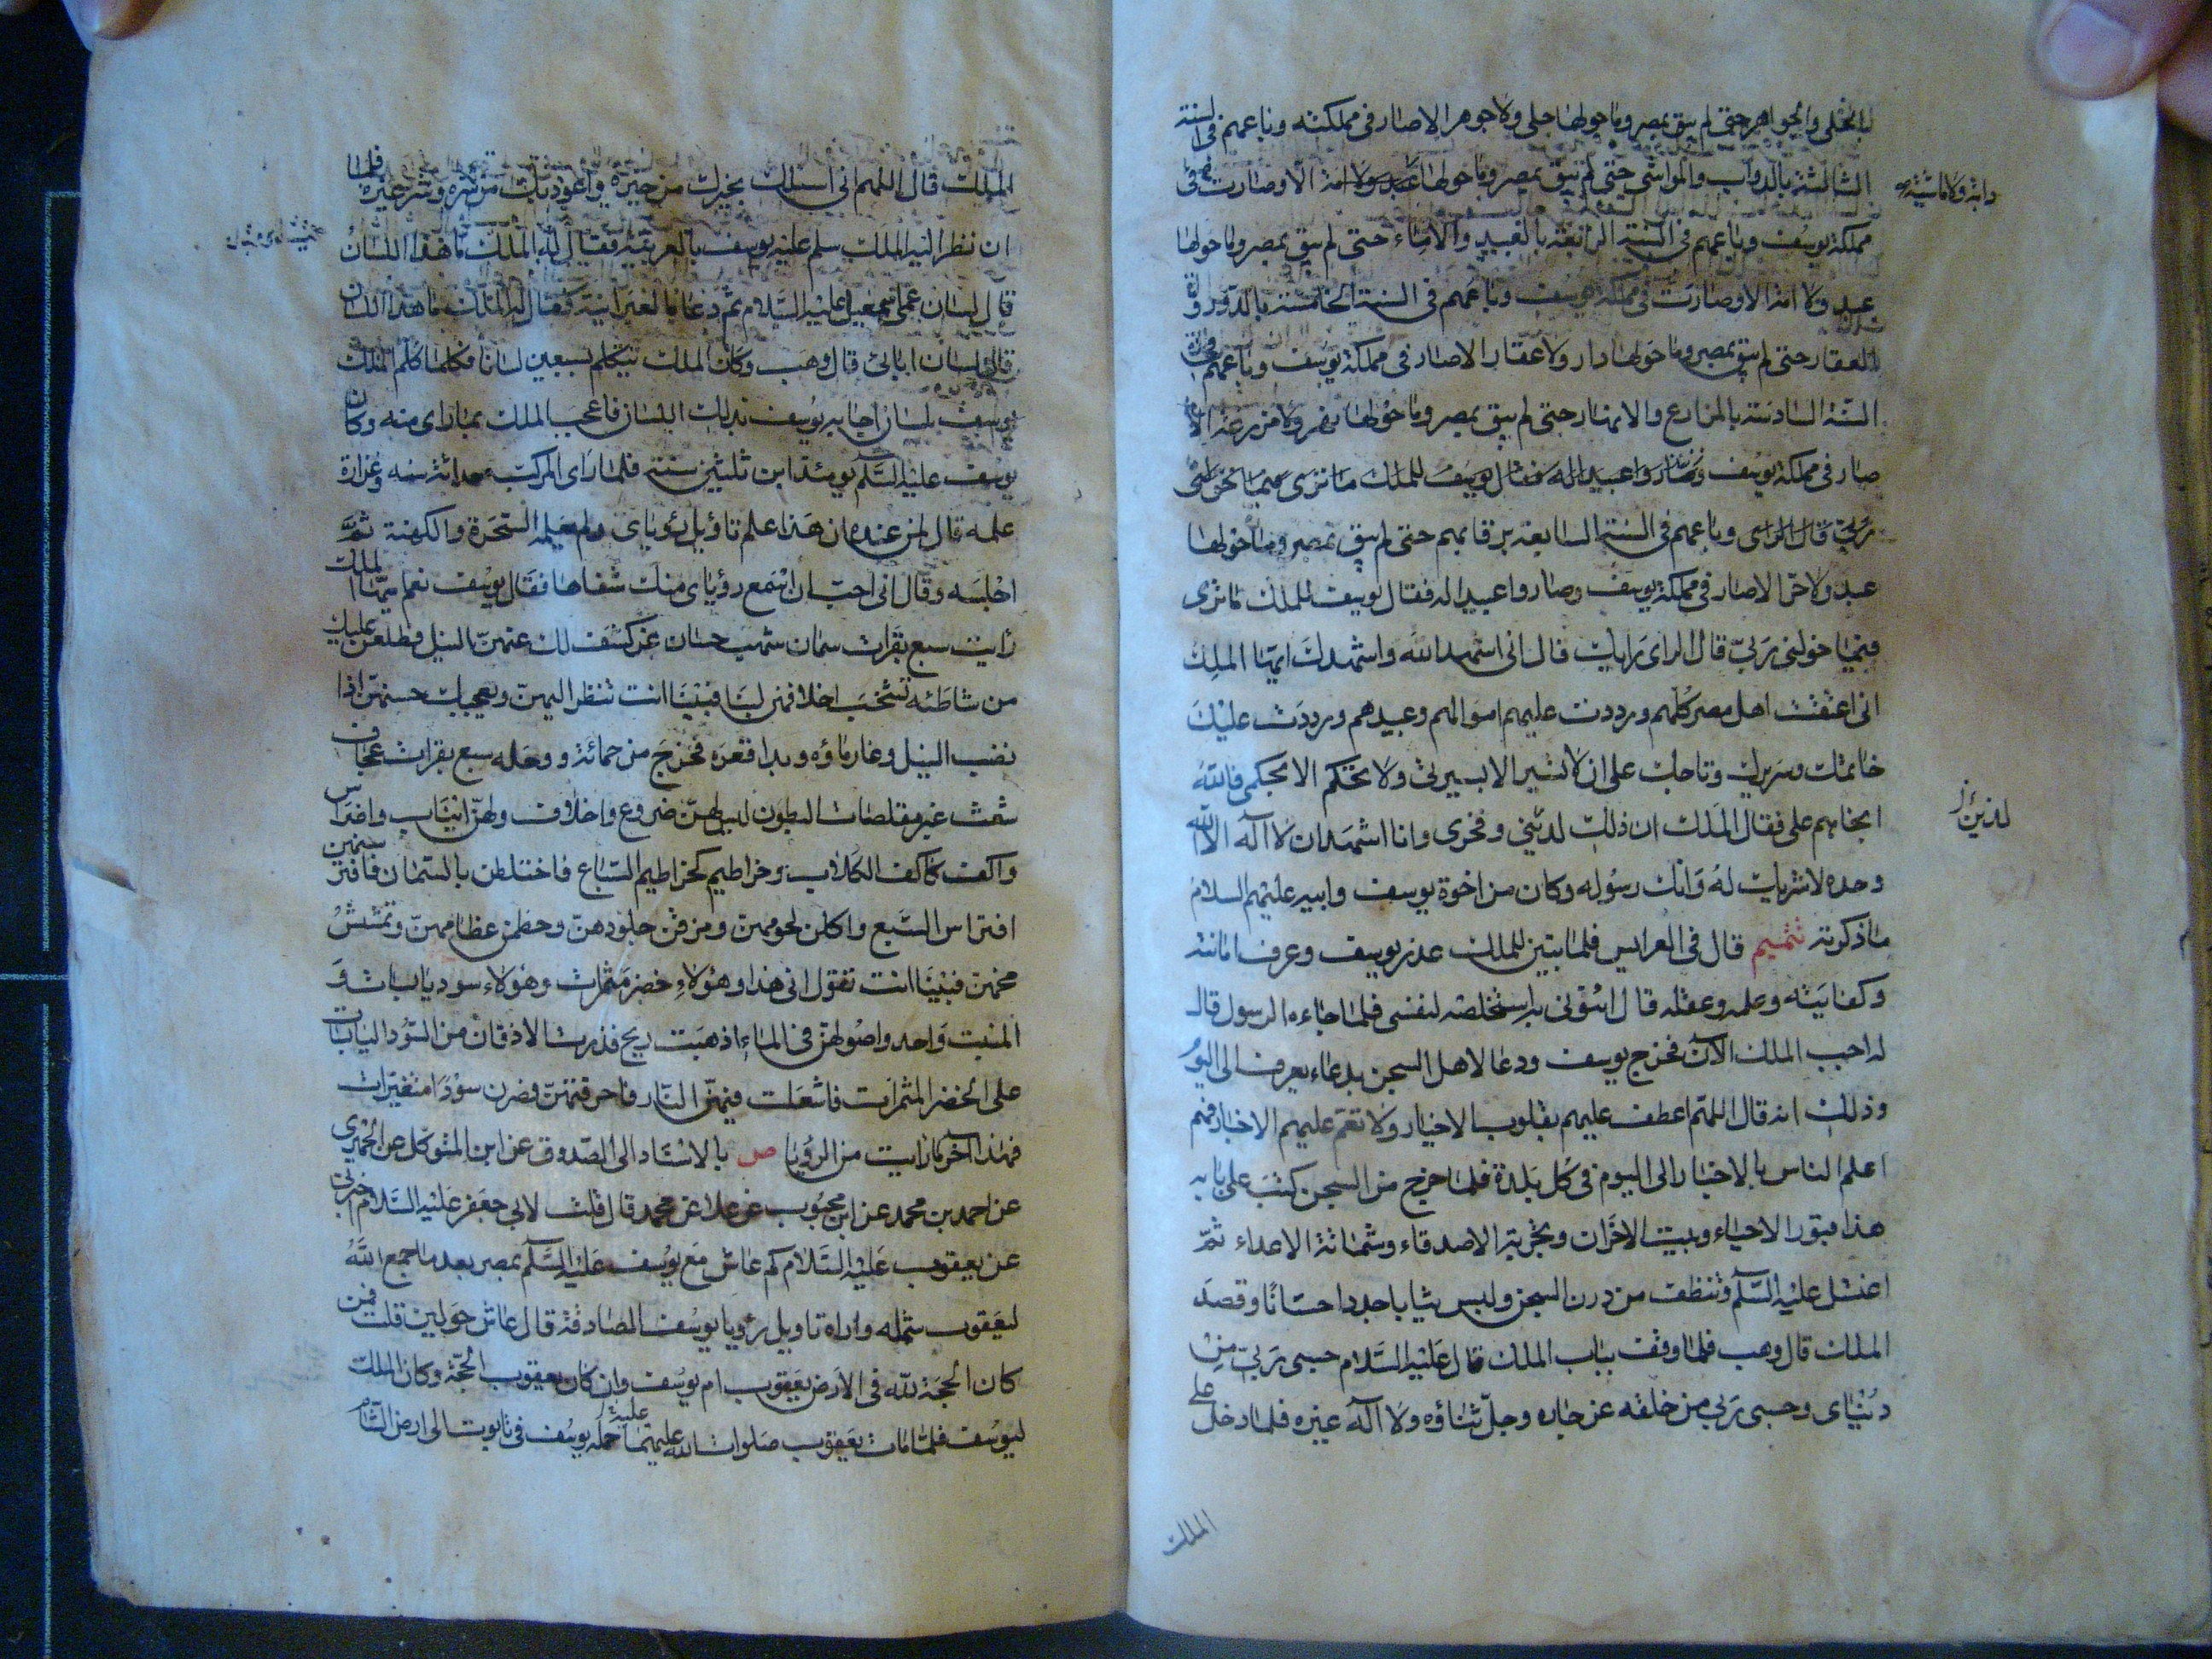 بالحلي والجواهر حتى لم يبق بمصر وما حولها حلي ولا جوهر الا صار في مملكته وباعهم في السنة
الثالثة بالدواب والمواشي حتى لم يبق بمصر وما حولها عبد ولا امة الا وصارت في
دابة ولا ماشية
مملكة يوسف وباعهم في السنة الرابعة بالعبيد والاماء حتى لم يبق بمصر وما حولها
عبد ولا امة الا وصارت في مملكة يوسف وباعهم في السنة الخامسة بالدور و
العقار حتى لم يبق بمصر وما حولها دار ولا عقار الا صار في مملكة يوسف وباعهم في
السنة السادسة بالمزارع والانهار حتى لم يبق بمصر وما حولها نهر ولا مزرعة الا
صار في مملكة يوسف وصاروا عبيدا له فقال يوسف للملك ما ترى فيما خولني
ربي قال الراى وباعهم في السنة السابعة برقابهم حتى لم يبق بمصر وما حولها
عبد ولا حر الا صار في مملكة يوسف وصاروا عبيدا له فقال يوسف للملك ما ترى
فيما خولني ربي قال الراى رايك قال اني اشهد الله واشهدك ايها الملك
اني اعتقت اهل مصر كلهم ورددت عليهم اموالهم وعبيدهم ورددت عليك
خاتمك وسريرك وتاجك على ان لا تسير الا بسيرتي ولا تحكم الا بحكمي فالله
انجاهم علي فقال الملك ان ذلك لديني وفخري وانا اشهد ان لا اله الا الله
لزيني
وحده لا شريك له وانك رسوله وكان من اخوة يوسف وابيه عليهم السلام
ما ذكرته تتميم قال في العرايس فلما تبين للملك عذر يوسف وعرف امانته
وكفايته وعلمه وعقله قال ائتوني به استخلصه لنفسي فلما جاءه الرسول قال
له اجب الملك الآن فخرج يوسف ودعا لاهل السجن بدعاء يعرف الى اليوم
وذلك انه قال اللهم اعطف عليهم بقلوب الاخيار ولا تعم عليهم الاخبار فهم
اعلم الناس بالاخبار الى اليوم في كل بلدة فلما خرج من السجن كتب على بابه
هذا قبور الاحياء وبيت الاحزان وتجربة الاصدقاء وشماتة الاعداء ثم
اغتسل عليه السلم وتنظف من درن السجن ولبس ثيابا جددا حسانا وقصد
الملك قال وهب فلما وقف بباب الملك قال عليه السلام حسبي ربي من
دنياي وحسبي ربي من خلقه عز جاره وجل ثناؤه ولا اله غيره فلما دخل على
الملك
الملك قال اللهم اني اسئلك بخيرك من خيره واعوذ بك من شره وشر غيره فلما
ان نظر اليه الملك سلم عليه يوسف بالعربية فقال له الملك ما هذا اللسان
قال لسان عمي اسمعيل عليه السلام ثم دعا بالعبرانية فقال له الملك ما هذا اللسان
قال لسان ابائي قال وهب وكان الملك يتكلم بسبعين لسانا فكلما كلم الملك
يوسف بلسان اجابه يوسف بذلك اللسان فاعجب الملك بما راى منه وكان
يوسف عليه السلم يومئذ ابن ثلثين سنة فلما راى الملك حداثة سنه وغزارة
علمه قال لمن عنده ان هذا علم تاويل رؤياى ولم يعلمه السحرة والكهنة ثم
اجلسه وقال اني احب ان اسمع رؤياى منك شفاها فقال يوسف نعم ايها الملك
رايت سبع بقرات سمان شهب حسان غر كشف لك عنهن النيل فطلعن عليك
من شاطئه تشخب اخلافهن لبنا فبينا انت تنظر اليهن ويعجبك حسنهن اذا
نضب النيل وغار ماؤه وبدا قعره فخرج من حمائة ووحله سبع بقرات عجاف
شعث غبر مقلصات البطون ليس لهن ضروع واخلاف ولهن انياب واضراس
واكف كاكف الكلاب وخراطيم كخراطيم السباع فاختلطن بالسمان فافترسنهن
افتراس السبع واكلن لحومهن ومزقن جلودهن وحطمن عظامهن وتمششن
مخهن فبينا انت تقول انى هذا وهؤلاء خضر مثمرات وهؤلاء سود يابسات و
المنبت واحد واصولهن في الماء اذ هبت ريح فذرت الاذقان من السود اليابسات
على الخضر المثمرات فاشعلت فيهن النار فاحرقتهن فصرن سودا متغيرات
فهذا آخر ما رايت من الرؤيا ص بالاسناد الى الصدوق عن ابن المتوكل عن الحميري
عن احمد بن محمد عن ابن محبوب عن علا عن محمد قال قلت لابي جعفر عليه السلام اخبرني
عن يعقوب عليه السلام كم عاش مع يوسف عليه السلم بمصر بعد ما جمع الله
ليعقوب شمله واراه تاويل رؤيا يوسف الصادقة قال عاش حولين قلت فمن
كان الحجة لله في الارض يعقوب ام يوسف وان كان يعقوب الحجة وكان الملك
ليوسف فلما مات يعقوب صلوات الله عليهما حمله يوسف في تابوت الى ارض الشام